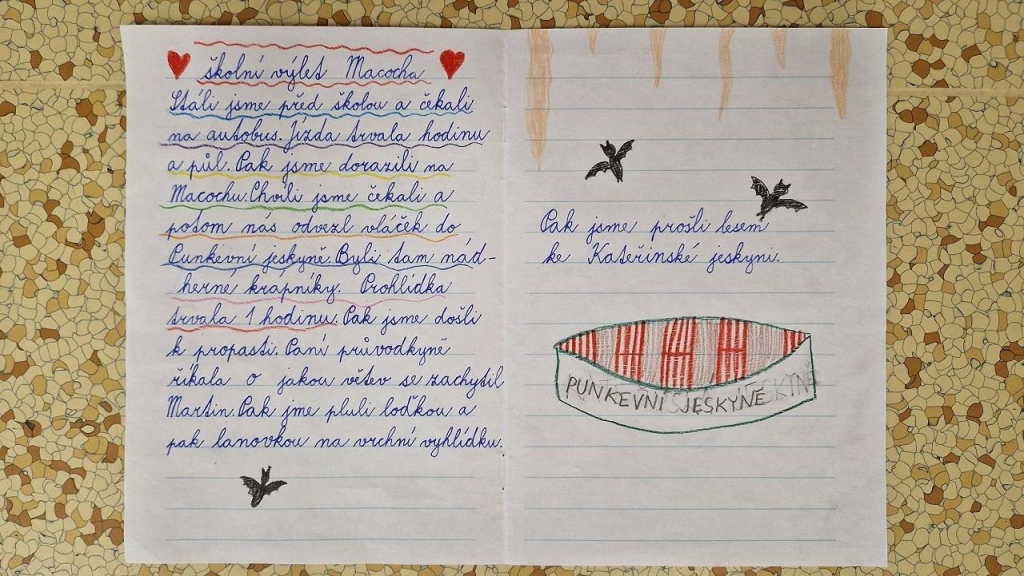 školní výlet Macocha
Stáli jsme před školou a čekali
na autobus. Jízda trvala hodinu
a půl. Pak jsme dorazili na
Macochu. Chvíli jsme čekali a
potom nás odvezl vláček do
Punkevní jeskyně. Byli tam nád-
herné krapníky. Prohlídka
trvala 1 hodinu. Pak jsme došli
k propasti. Paní průvodkyně
říkala o jakou větev se zachytil
Martin. Pak jme pluli loďkou a
pak lanovkou na vrchní vyhlídku.
Pak jsme prošli lesem
ke Kateřinské jeskyni.
PUNKEVNÍ JESKYNĚ